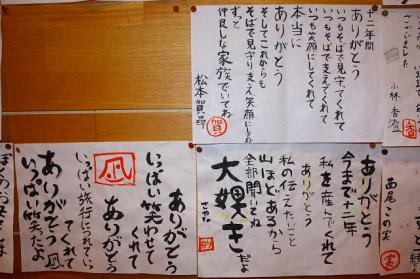 小林 香澄
香
十二年間
ありがとう
いつもそばで見守ってくれて
いつもそばで支えてくれて
いつも笑顔にしてくれて
本当に
ありがとう
そしてこれからも
そばで見守り支え笑顔にしてね
ずっと
仲良しな家族でいてね
松本 賀尋
賀
西尾 この実
実
ありがとう
今まで十二年
私を産んでくれて
ありがとう
私の伝えたいこと
山ほどあるから
全部聞いてね
大好きだよ
ありがとう
いっぱい笑わせて
くれて
ありがとう
凪
いっぱい旅行につれていっ
てくれて
ありがとう
いっぱい笑たよ
凪